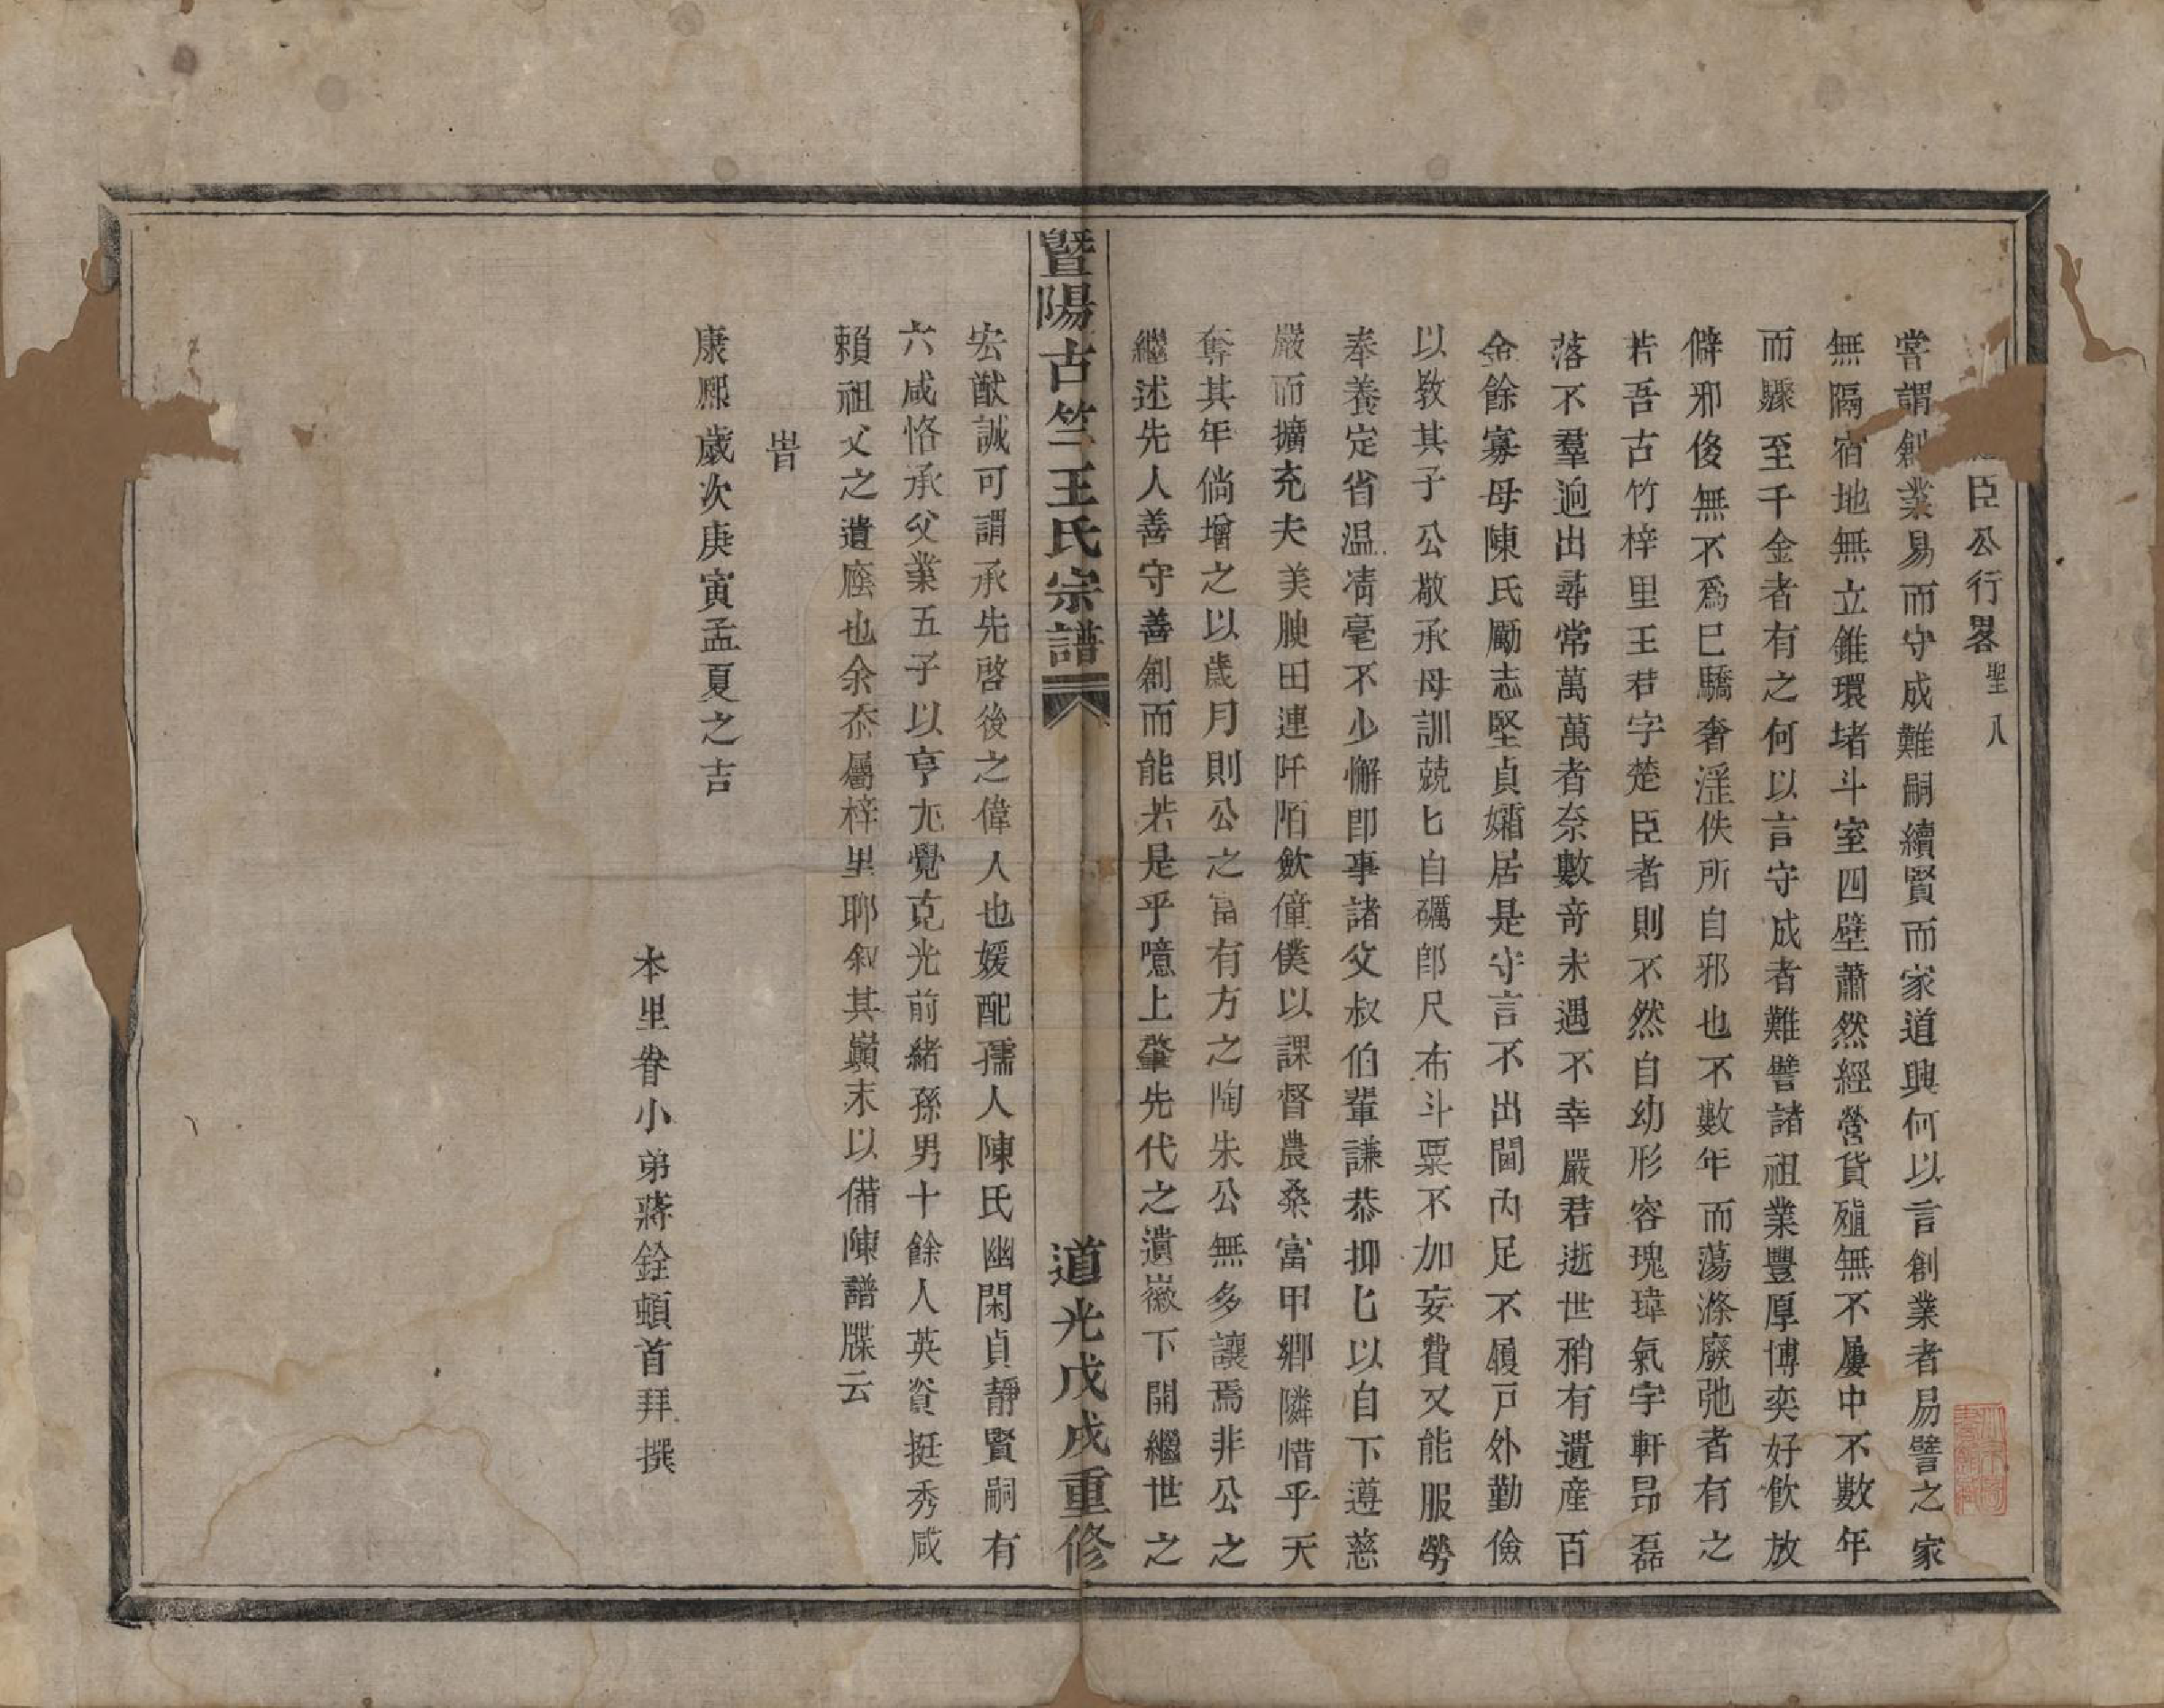 臣公行畧聖八
嘗謂創業易而守成難嗣續賢而家道興何以言創業者易譬之家
無隔宿地無立錐環堵斗室四壁蕭然經營貨殖無不屢中不數年
而驟至千金者有之何以言守成者難譬諸祖業豐厚博奕好飲放
僻邪侈無不爲已驕奢淫佚所自邪也不數年而蕩滌廢弛者有之
若吾古竹梓里王君字楚臣者則不然自幼形容瑰瑋氣宇軒昂磊
落不羣逈出尋常萬萬者奈數竒未遇不幸嚴君逝世稍有遺産百
金餘寡母陳氏勵志堅貞孀居是守言不出閫内足不履戸外勤儉
以敎其子公敬承母訓兢匕自礪卽尺布斗粟不加妄費又能服勞
奉養定省温凊毫不少懈卽事諸父叔伯輩謙恭抑匕以自下遵慈
嚴而擴充夫美腴田連阡陌歛僮僕以課督農桑富甲鄉隣惜乎天
奪其年倘增之以歲月則公之富有方之陶朱公無多讓焉非公之
繼述先人善守善創而能若是乎噫上肇先代之遺徽下開繼世之
暨陽古竺王氏宗譜
道光戊戌重修
宏猷誠可謂承先啓後之偉人也媛配孺人陳氏幽閑貞靜賢嗣有
六咸恪承父業五子以亨尢覺克光前緒孫男十餘人英資挺秀咸
賴祖父之遺廕也余忝屬梓里聊叙其巔末以備陳譜牒云
旹
康熙歲次庚寅孟夏之吉
本里眷小弟蔣銓頓首拜撰